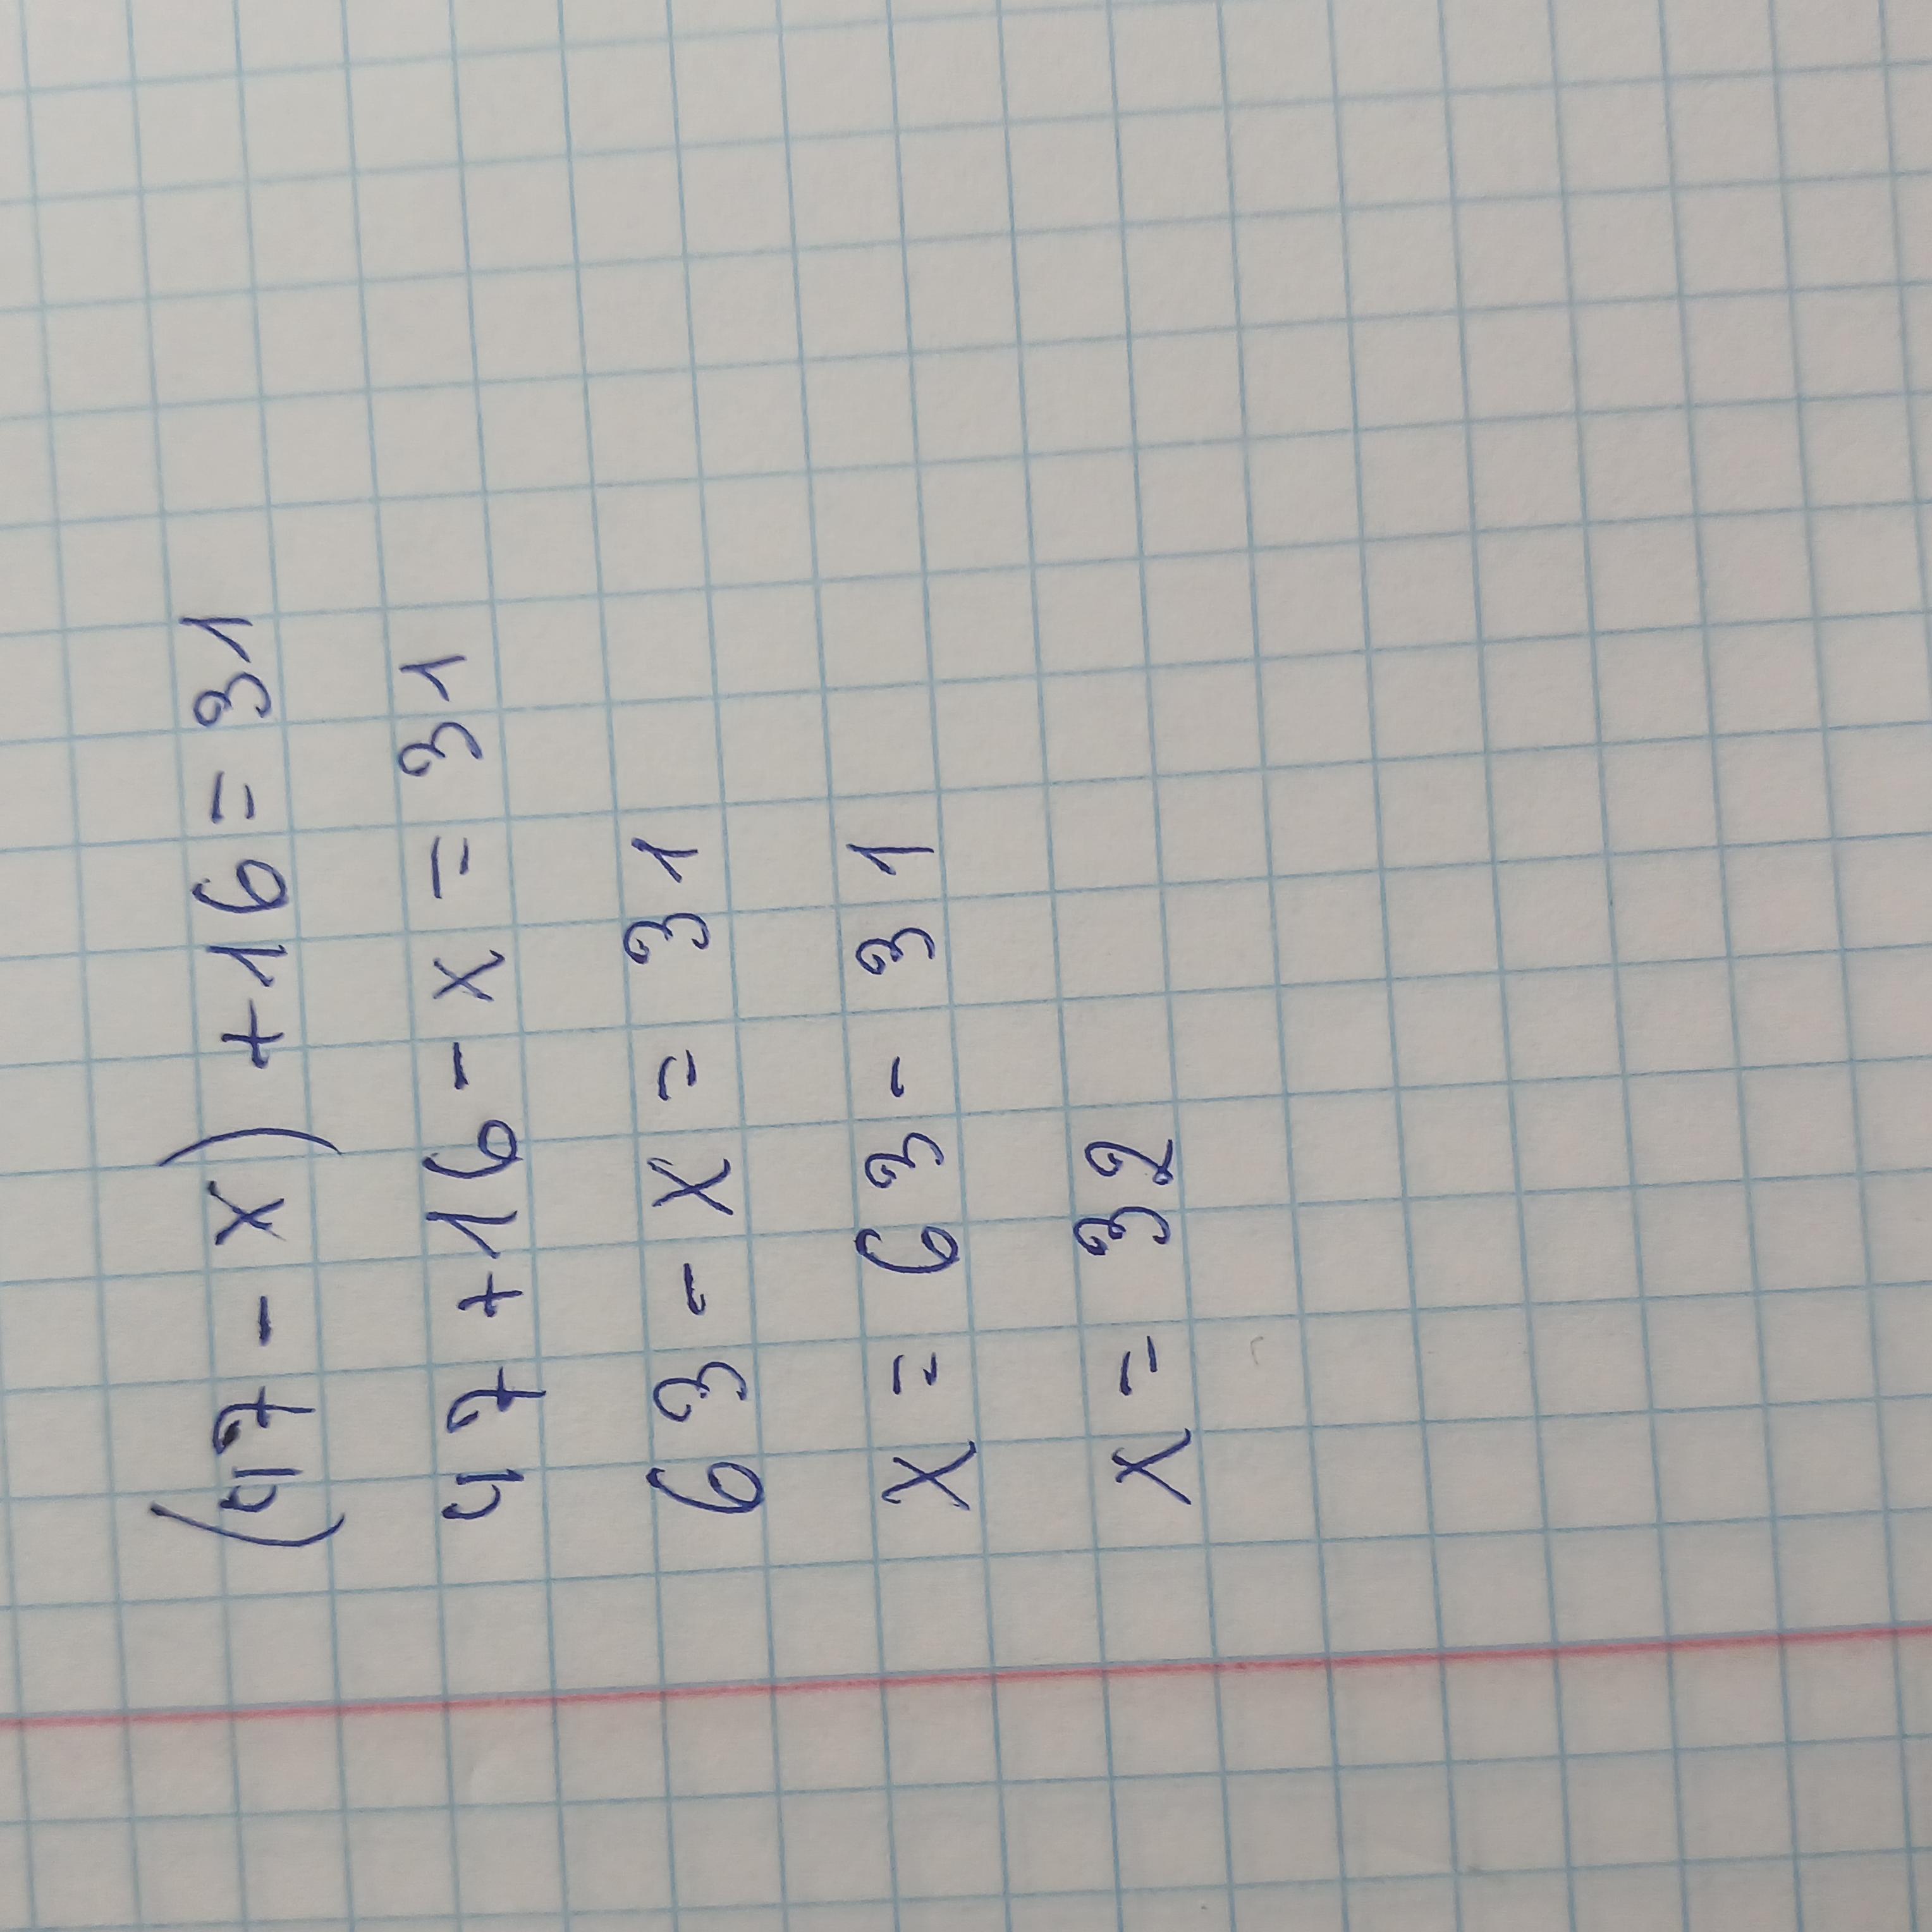 (47 - x) + 16 = 31
47 + 16 - x = 31
63 - x = 31
x = 63 - 31
x = 32